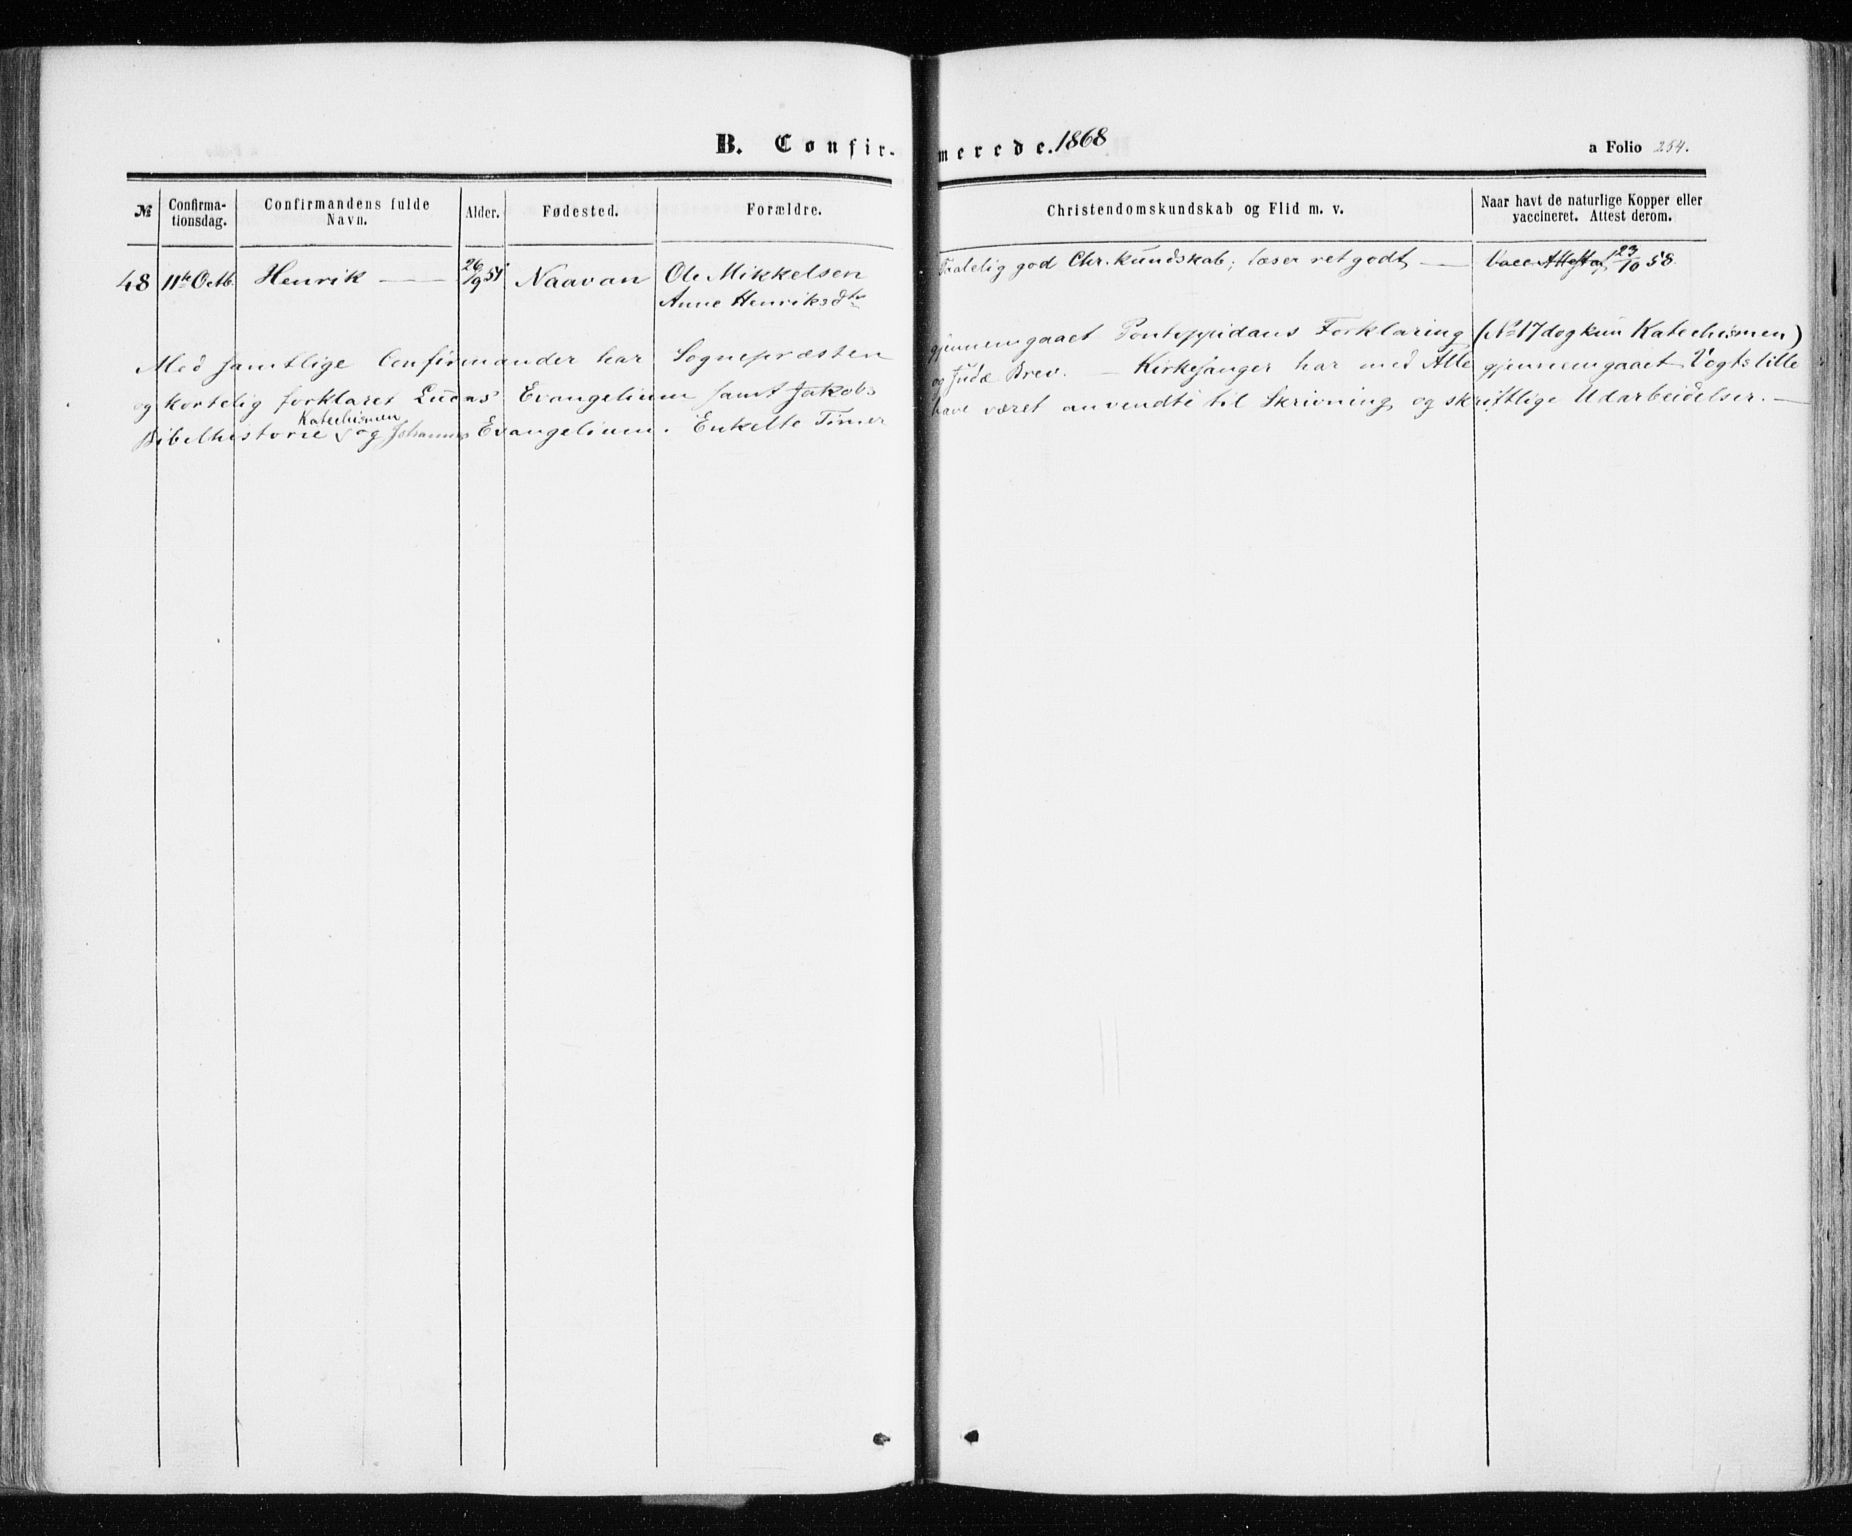 B. Confirmerede. 1868
a Folio 254.
№ Confirma-tionsdag. Confirmandens fulde Navn. Alder. Fødested. Forældre. Christendomskundskab og Flid m. v. Naar havt de naturlige Kopper eller vaccineret. Attest derom.
48 11te Octb. Henrik — 26/9 51 Naavan Ole Mikkelsen Taalelig god Chr. kundskab; læser ret godt — Vacc. Attest af 23/10 58.
Anne Henriksdtr
Med samtlige Confirmander har Sognepræsten gjennemgaaet Pontoppidans Forklaring (No 17 dog kun Katechismen)
og kortelig forklaret Lucas Evangelium samt Jakobs og Judæ Brev. — Kirkesanger har med Alle gjennemgaaet Vogts lille
Katechismen
Bibelhistorie og Johannes Evangelium. Enkelte Timer have været anvendte til Skrivning og skriftlige Udarbeidelser. —